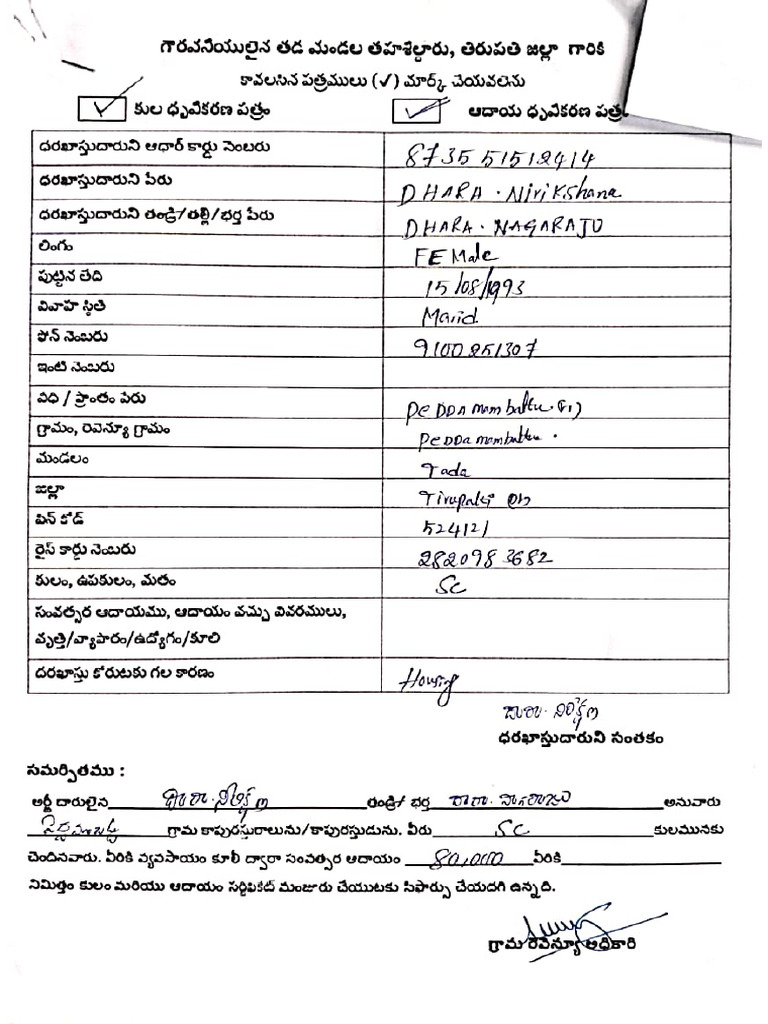 గౌరవనీయులైన తడ మండల తహశీల్దారు, తిరుపతి జిల్లా గారికి
కావలసిన పత్రములు (✓) మార్క్ చేయవలెను
✓ కుల ధృవీకరణ పత్రం ✓ ఆదాయ ధృవీకరణ పత్రం
దరఖాస్తుదారుని ఆధార్ కార్డు నెంబరు 8735 5151 2414
దరఖాస్తుదారుని పేరు DHARA. Nirikshana
దరఖాస్తుదారుని తండ్రి/తల్లి/భర్త పేరు DHARA. NAGARAJU
లింగం FEMale
పుట్టిన తేది 15/08/1993
వివాహ స్థితి Marid
ఫోన్ నెంబరు 9100251307
ఇంటి నెంబరు
వీధి / ప్రాంతం పేరు PeDDamambattu (V)
గ్రామం, రెవెన్యూ గ్రామం PeDDamambattu.
మండలం Tada
జిల్లా Tirupati
పిన్ కోడ్ 524121
రైస్ కార్డు నెంబరు 2820983682
కులం, ఉపకులం, మతం SC
సంవత్సర ఆదాయము, ఆదాయం వచ్చు వివరములు,
వృత్తి/వ్యాపారం/ఉద్యోగం/కూలి
దరఖాస్తు కోరుటకు గల కారణం Housing
దారా. నిరీక్షణ
ధరఖాస్తుదారుని సంతకం
సమర్పితము :
అర్జీ దారులైన దారా. నిరీక్షణ తండ్రి/ భర్త దారా. నాగరాజు అనువారు
పెద్దమాంబట్టు గ్రామ కాపురస్తురాలును/కాపురస్తుడును. వీరు SC కులమునకు
చెందినవారు. వీరికి వ్యవసాయం కూలీ ద్వారా సంవత్సర ఆదాయం 80,000 వీరికి
నిమిత్తం కులం మరియు ఆదాయం సర్టిఫికేట్ మంజూరు చేయుటకు సిఫార్సు చేయదగి ఉన్నది.
గ్రామ రెవెన్యూ అధికారి